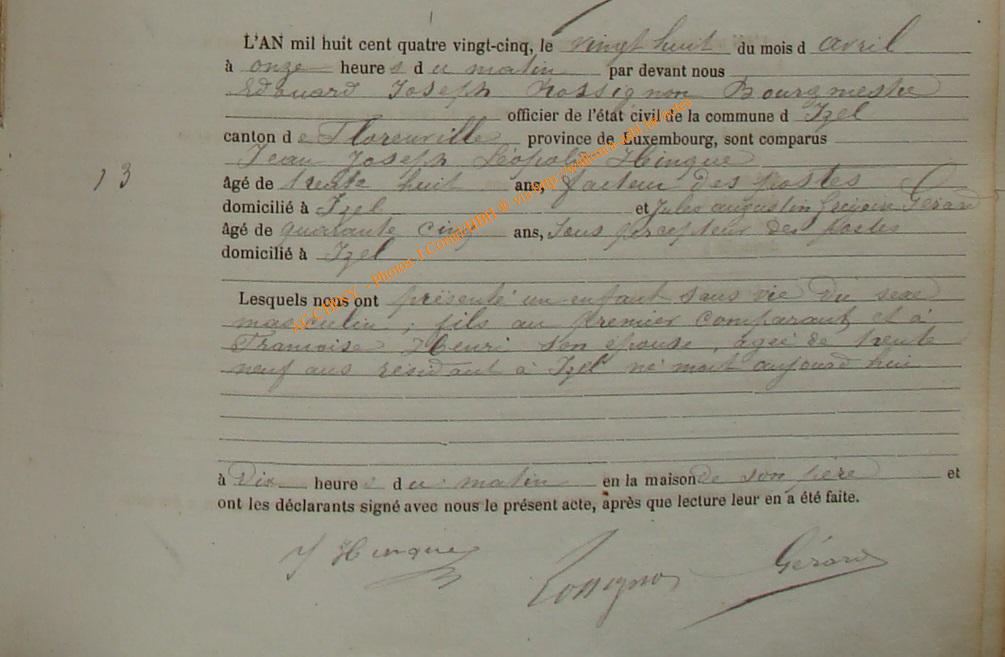 L'AN mil huit cent quatre vingt-cinq, le vingt huit du mois d avril
à onze heures du matin par devant nous
Edouard Joseph Rossignon Bourgmestre
officier de l'état civil de la commune d Izel
canton de Florenville province de Luxembourg, sont comparus
Jean Joseph Léopold Hinque
13
âgé de trente huit ans, facteur des postes
domicilié à Izel et Jules augustin Gérard
âgé de quarante cinq ans, Sous percepteur des postes
domicilié à Izel
Lesquels nous ont présenté un enfant sans vie du sexe
masculin, fils au premier comparant et à
Francoise Henri son épouse, agée de trente
neuf ans résidant à Izel né mort aujourd'hui
à Dix heures du matin en la maison de son père et
ont les déclarants signé avec nous le présent acte, après que lecture leur en a été faite.
J Hinque Rossignon Gérard